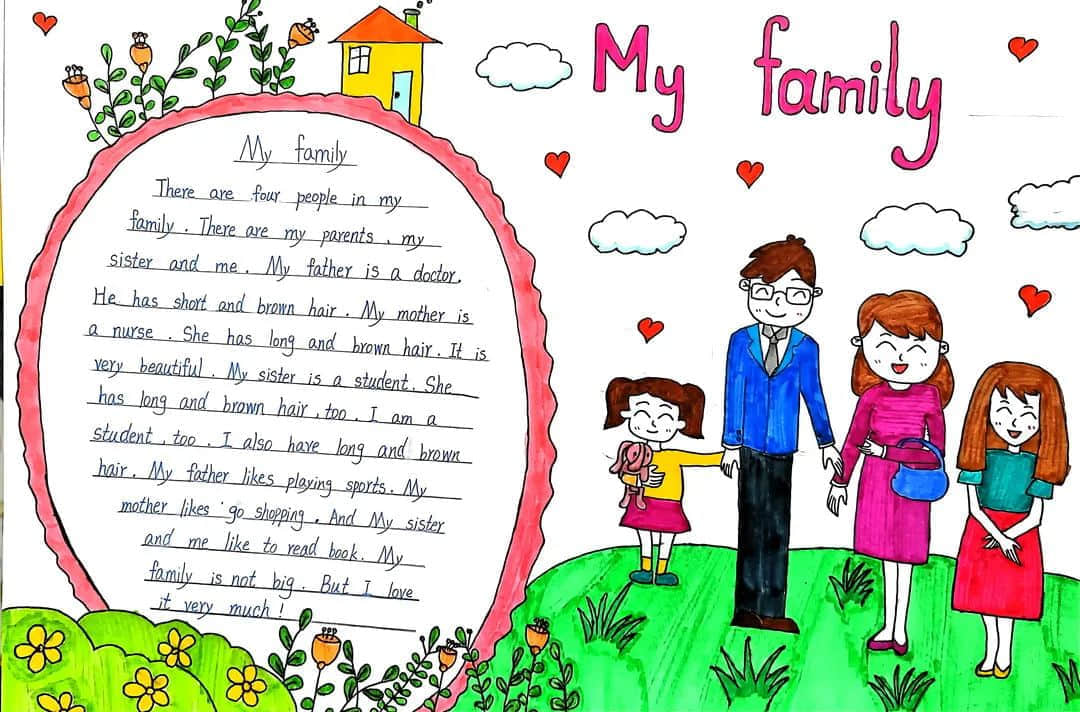 My family
My family
There are four people in my
family. There are my parents, my
sister and me. My father is a doctor.
He has short and brown hair. My mother is
a nurse. She has long and brown hair. It is
very beautiful. My sister is a student. She
has long and brown hair, too. I am a
student, too. I also have long and brown
hair. My father likes playing sports. My
mother likes go shopping. And My sister
and me like to read book. My
family is not big. But I love
it very much!